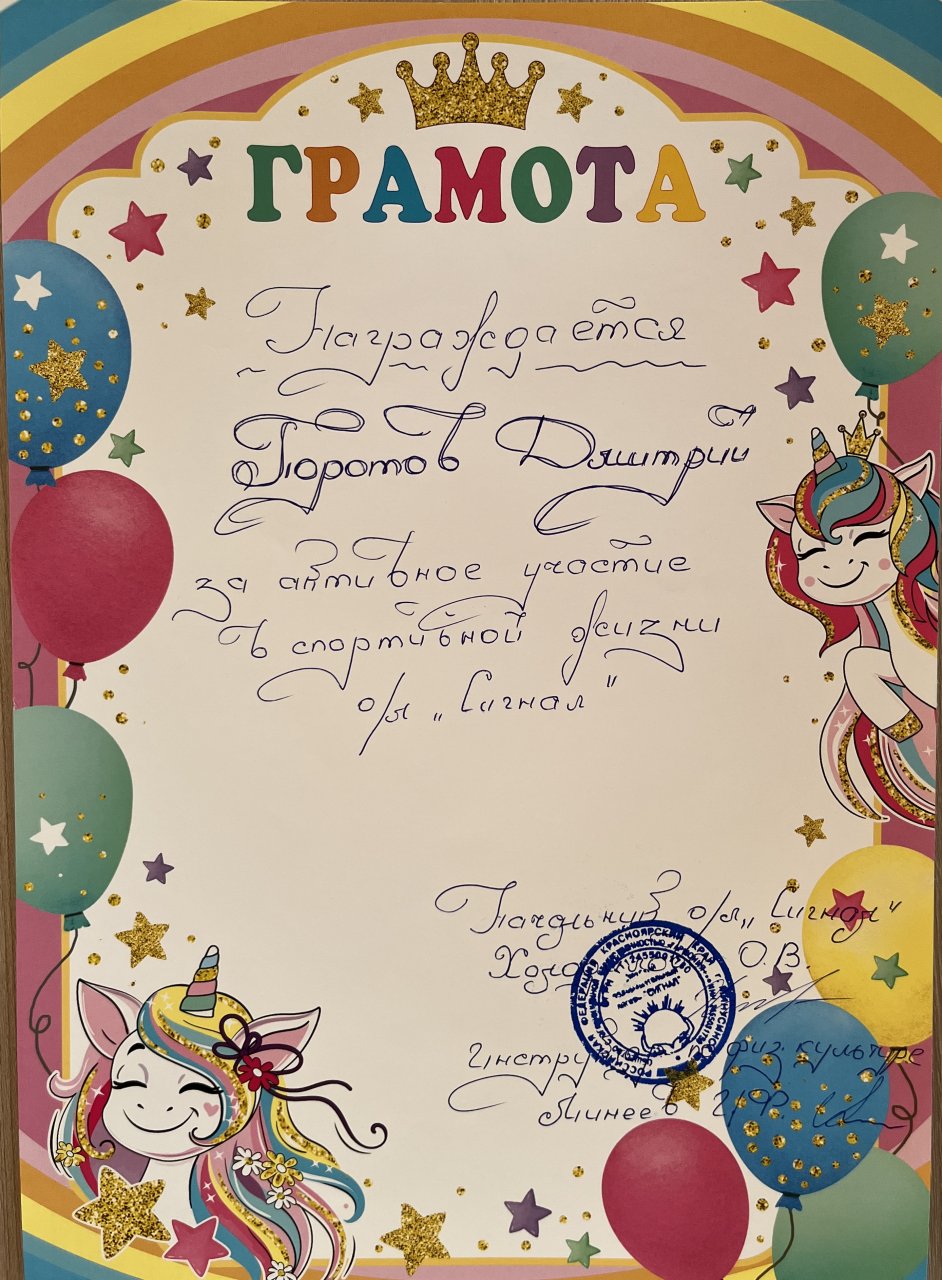 ГРАМОТА
Награждается
Поротов Дмитрий
за активное участие
в спортивной жизни
о/л „Сигнал"
Начальник о/л „Сигнал"
О.В.
по физ. культуре
Минеев
РОССИЙСКАЯ ФЕДЕРАЦИЯ КРАСНОЯРСКИЙ КРАЙ Г. МИНУСИНСК
"СИГНАЛ"